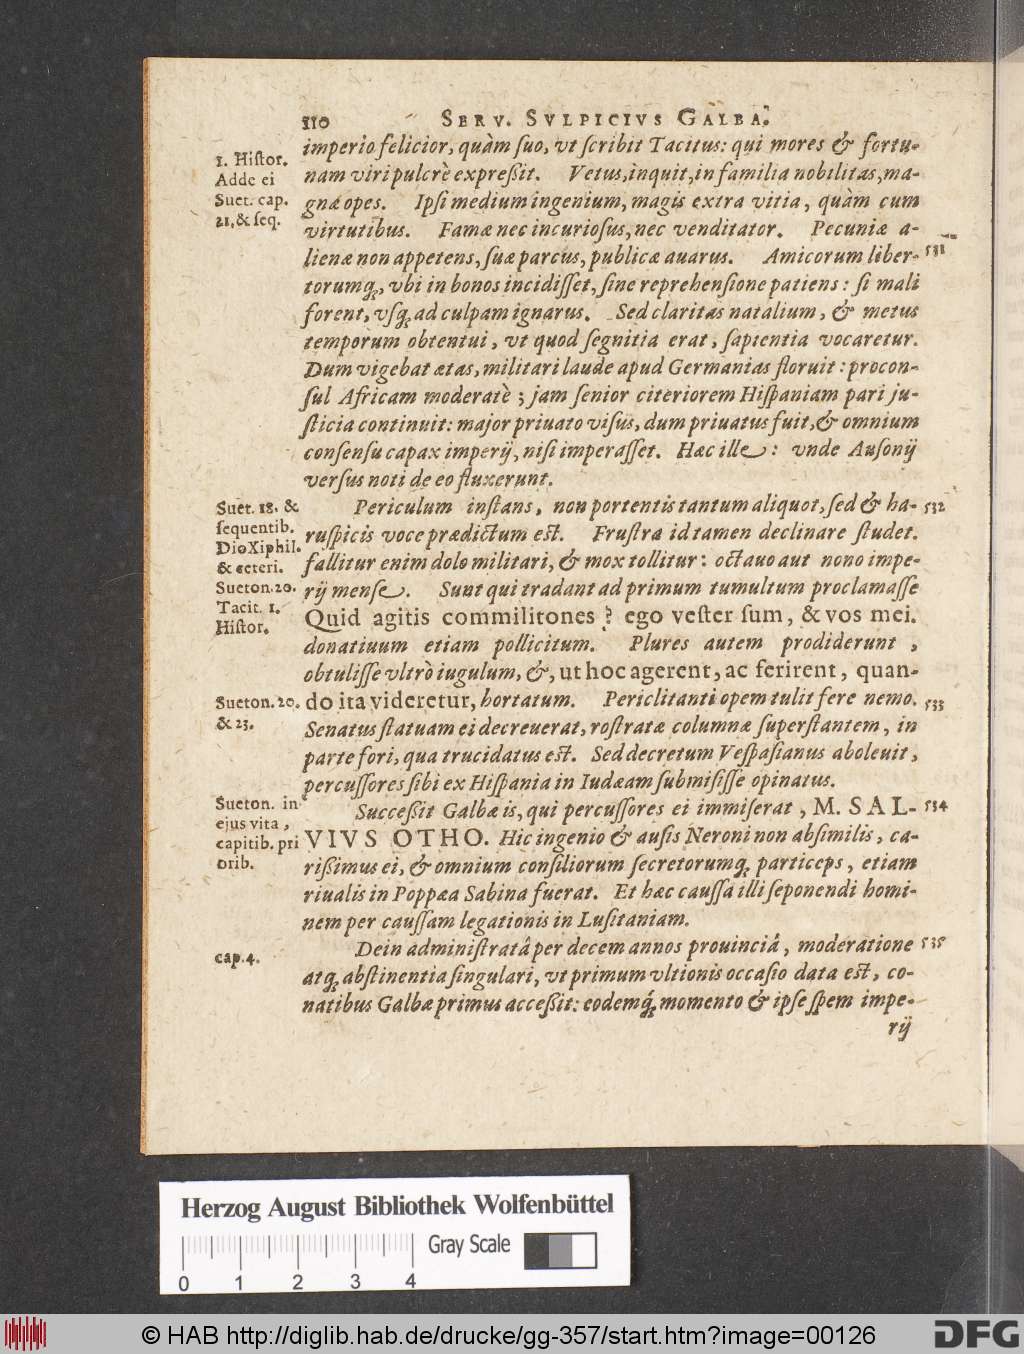 110 SERV. SVLPICIVS GALBA.
imperio felicior, quàm ſuo, vt ſcribit Tacitus: qui mores & fortu-
nam viri pulcrè expreßit. Vetus, inquit, in familia nobilitas, ma-
gnæ opes. Ipſi medium ingenium, magis extra vitia, quàm cum
virtutibus. Famæ nec incurioſus, nec venditator. Pecuniæ a-
lienæ non appetens, ſuæ parcus, publicæ auarus. Amicorum liber-
torumq́, vbi in bonos incidiſſet, ſine reprehenſione patiens: ſi mali
forent, vſq́ ad culpam ignarus. Sed claritas natalium, & metus
temporum obtentui, vt quod ſegnitia erat, ſapientia vocaretur.
Dum vigebat ætas, militari laude apud Germanias floruit: procon-
ſul Africam moderatè; jam ſenior citeriorem Hiſpaniam pari ju-
ſticia continuit: major priuato viſus, dum priuatus fuit, & omnium
conſenſu capax imperij, niſi imperaſſet. Hæc ille: vnde Auſonij
verſus noti de eo fluxerunt.
1. Hiſtor.
Adde ei
Suet. cap.
21, & ſeq.
531
Periculum inſtans, non portentis tantum aliquot, ſed & ha-
ruſpicis voce prædictum eſt. Fruſtra id tamen declinare ſtudet.
fallitur enim dolo militari, & mox tollitur: octauo aut nono impe-
rij menſe. Sunt qui tradant ad primum tumultum proclamaſſe
Quid agitis commilitones? ego veſter ſum, & vos mei.
donatiuum etiam pollicitum. Plures autem prodiderunt,
obtuliſſe vltrò iugulum, &, ut hoc agerent, ac ferirent, quan-
do ita videretur, hortatum. Periclitanti opem tulit fere nemo.
Senatus ſtatuam ei decreuerat, roſtratæ columnæ ſuperſtantem, in
parte fori, qua trucidatus eſt. Sed decretum Veſpaſianus aboleuit,
percuſſores ſibi ex Hiſpania in Iudæam ſubmiſiſſe opinatus.
Suet. 18. &
ſequentib.
Dio Xiphil.
& ceteri.
Sueton. 20.
Tacit. 1.
Hiſtor.
Sueton. 20.
& 23.
532
533
Succeßit Galbæ is, qui percuſſores ei immiſerat, M. SAL-
VIVS OTHO. Hic ingenio & auſis Neroni non abſimilis, ca-
rißimus ei, & omnium conſiliorum ſecretorumq́ particeps, etiam
riualis in Poppæa Sabina fuerat. Et hæc cauſſa illi ſeponendi homi-
nem per cauſſam legationis in Luſitaniam.
Sueton. in
ejus vita,
capitib. pri
orib.
534
Dein adminiſtratâ per decem annos prouinciâ, moderatione
atq́ abſtinentia ſingulari, vt primum vltionis occaſio data eſt, co-
natibus Galbæ primus acceßit: eodemq́ momento & ipſe ſpem impe-
rij
cap. 4.
535
Herzog August Bibliothek Wolfenbüttel
Gray Scale
0 1 2 3 4
© HAB http://diglib.hab.de/drucke/gg-357/start.htm?image=00126
DFG